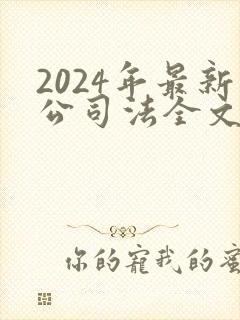 2024年最新
公司法全文
你的宠我的蜜